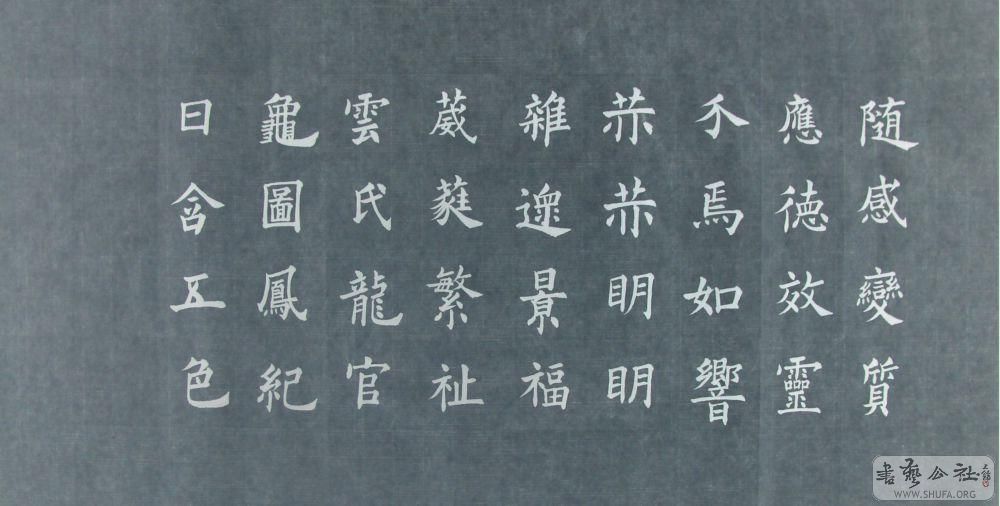 随感變質
應德效靈
介焉如響
赫赫眀眀
雜遝景福
葳蕤繁祉
雲氏龍官
龜圖鳳紀
日含五色
書藝公社
WWW.SHUFA.ORG